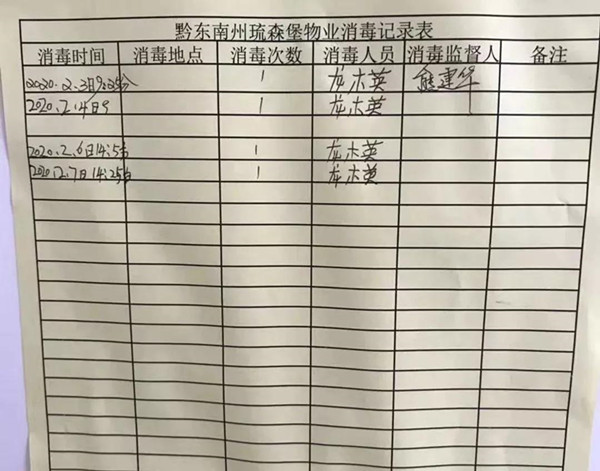 黔东南州琉森堡物业消毒记录表
消毒时间 消毒地点 消毒次数 消毒人员 消毒监督人 备注
2020.2.3日9:25分 1 龙木英 熊建华
2020.2.4日9 1 龙木英
2020.2.6日14:5 1 龙木英
2020.2.7日14:25 1 龙木英